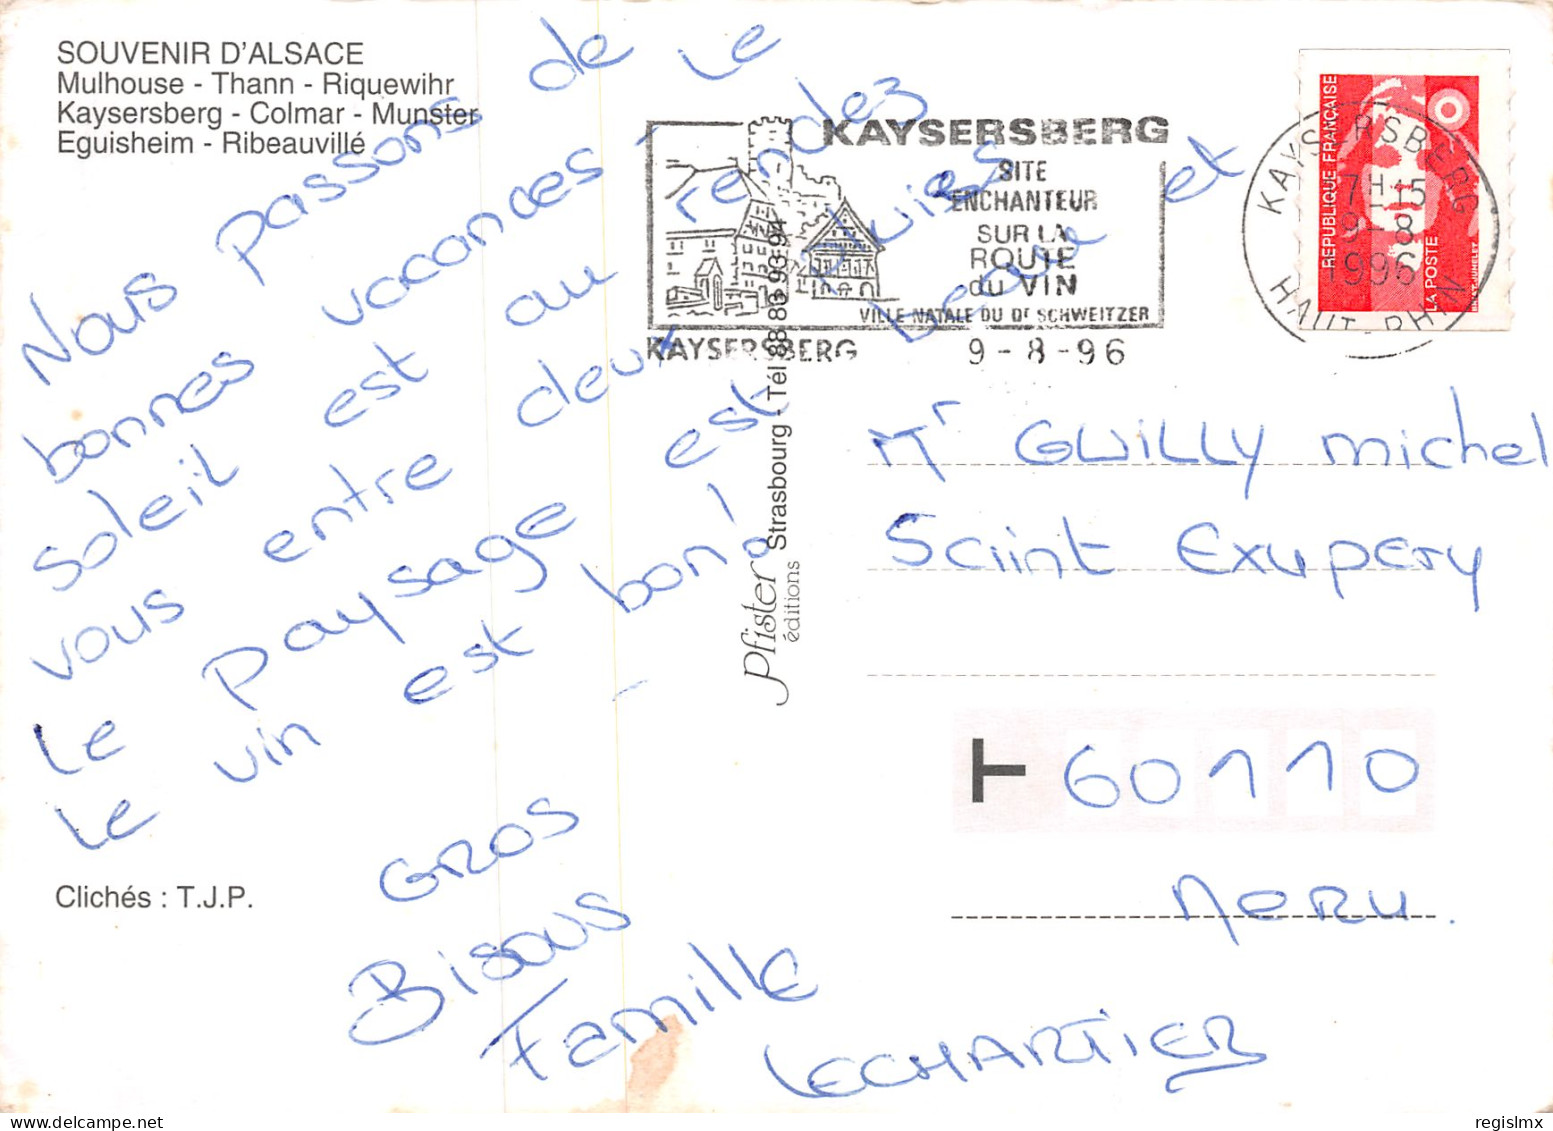 SOUVENIR D'ALSACE
Mulhouse - Thann - Riquewihr
Kaysersberg - Colmar - Munster
Eguisheim - Ribeauvillé
Nous passons de
bonnes vacances - Le
soleil est au rendez
vous entre deux pluies
Le paysage est beau et
Le vin est bon!
GROS
Bisous
Famille
LECHARTIER
Clichés : T.J.P.
Pfister
éditions
Strasbourg - Tél. 88 83 93 94
KAYSERSBERG
SITE
ENCHANTEUR
SUR LA
ROUTE
du VIN
VILLE NATALE DU Dr SCHWEITZER
KAYSERSBERG 9-8-96
REPUBLIQUE FRANÇAISE
LA POSTE
KAYSERSBERG
7H15
9-8
1996
HAUT-RHIN
Mr GWILLY Michel
Saint Exupery
60110
MERU.
regislmx